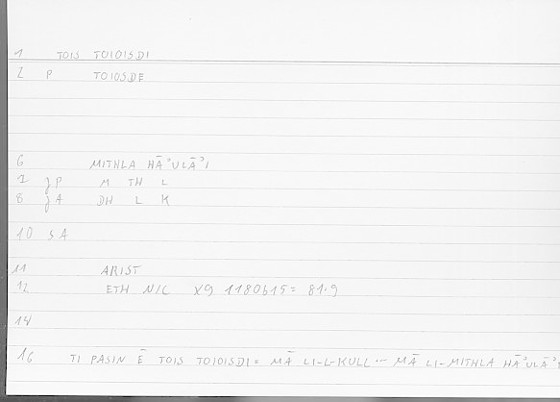 1 TOIS TOIOISDI
2 P TOIOSDE
6 MITHLA HĀʾULĀʾI
2 JP M TH L
8 JA DH L K
10 SA
11 ARIST
12 ETH NIC X9 1180b15 = 81.9
14
16 TI PASIN Ē TOIS TOIOISDI = MĀ LI-L-KULL ... MĀ LI-MITHLA HĀʾULĀʾI